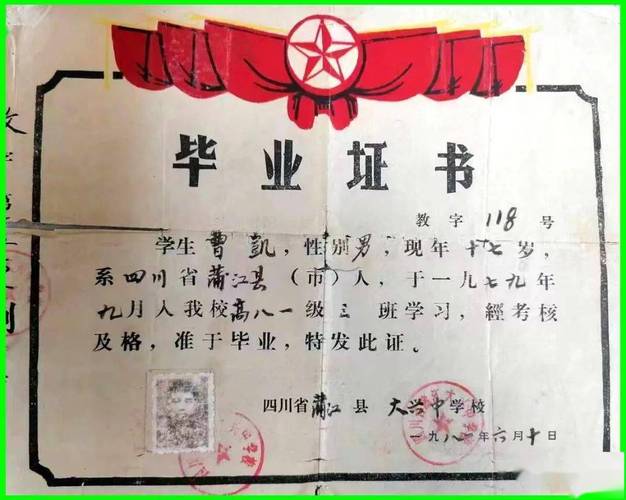 毕业证书
教字118号
学生曹凯，性别男，现年十七岁，
系四川省蒲江县（市）人，于一九七九年
九月入我校高八一级三班学习，經考核
及格，准于毕业，特发此证。
四川省蒲江县大兴中学校
一九八一年六月十日